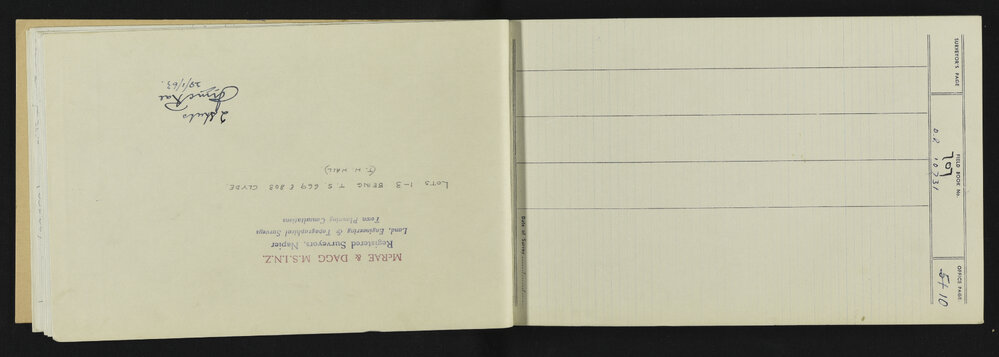 McRAE & DAGG M.S.I.N.Z.
Registered Surveyors, Napier
Land, Engineering & Topographical Surveys
Town Planning Consultations
LOTS 1-3 BEING T.S. 669 & 808 CLYDE
(T. H. HALL)
28/1/63.
SURVEYOR'S PAGE
FIELD BOOK No.
707
D.P. 10731
OFFICE PAGE
Date of Survey